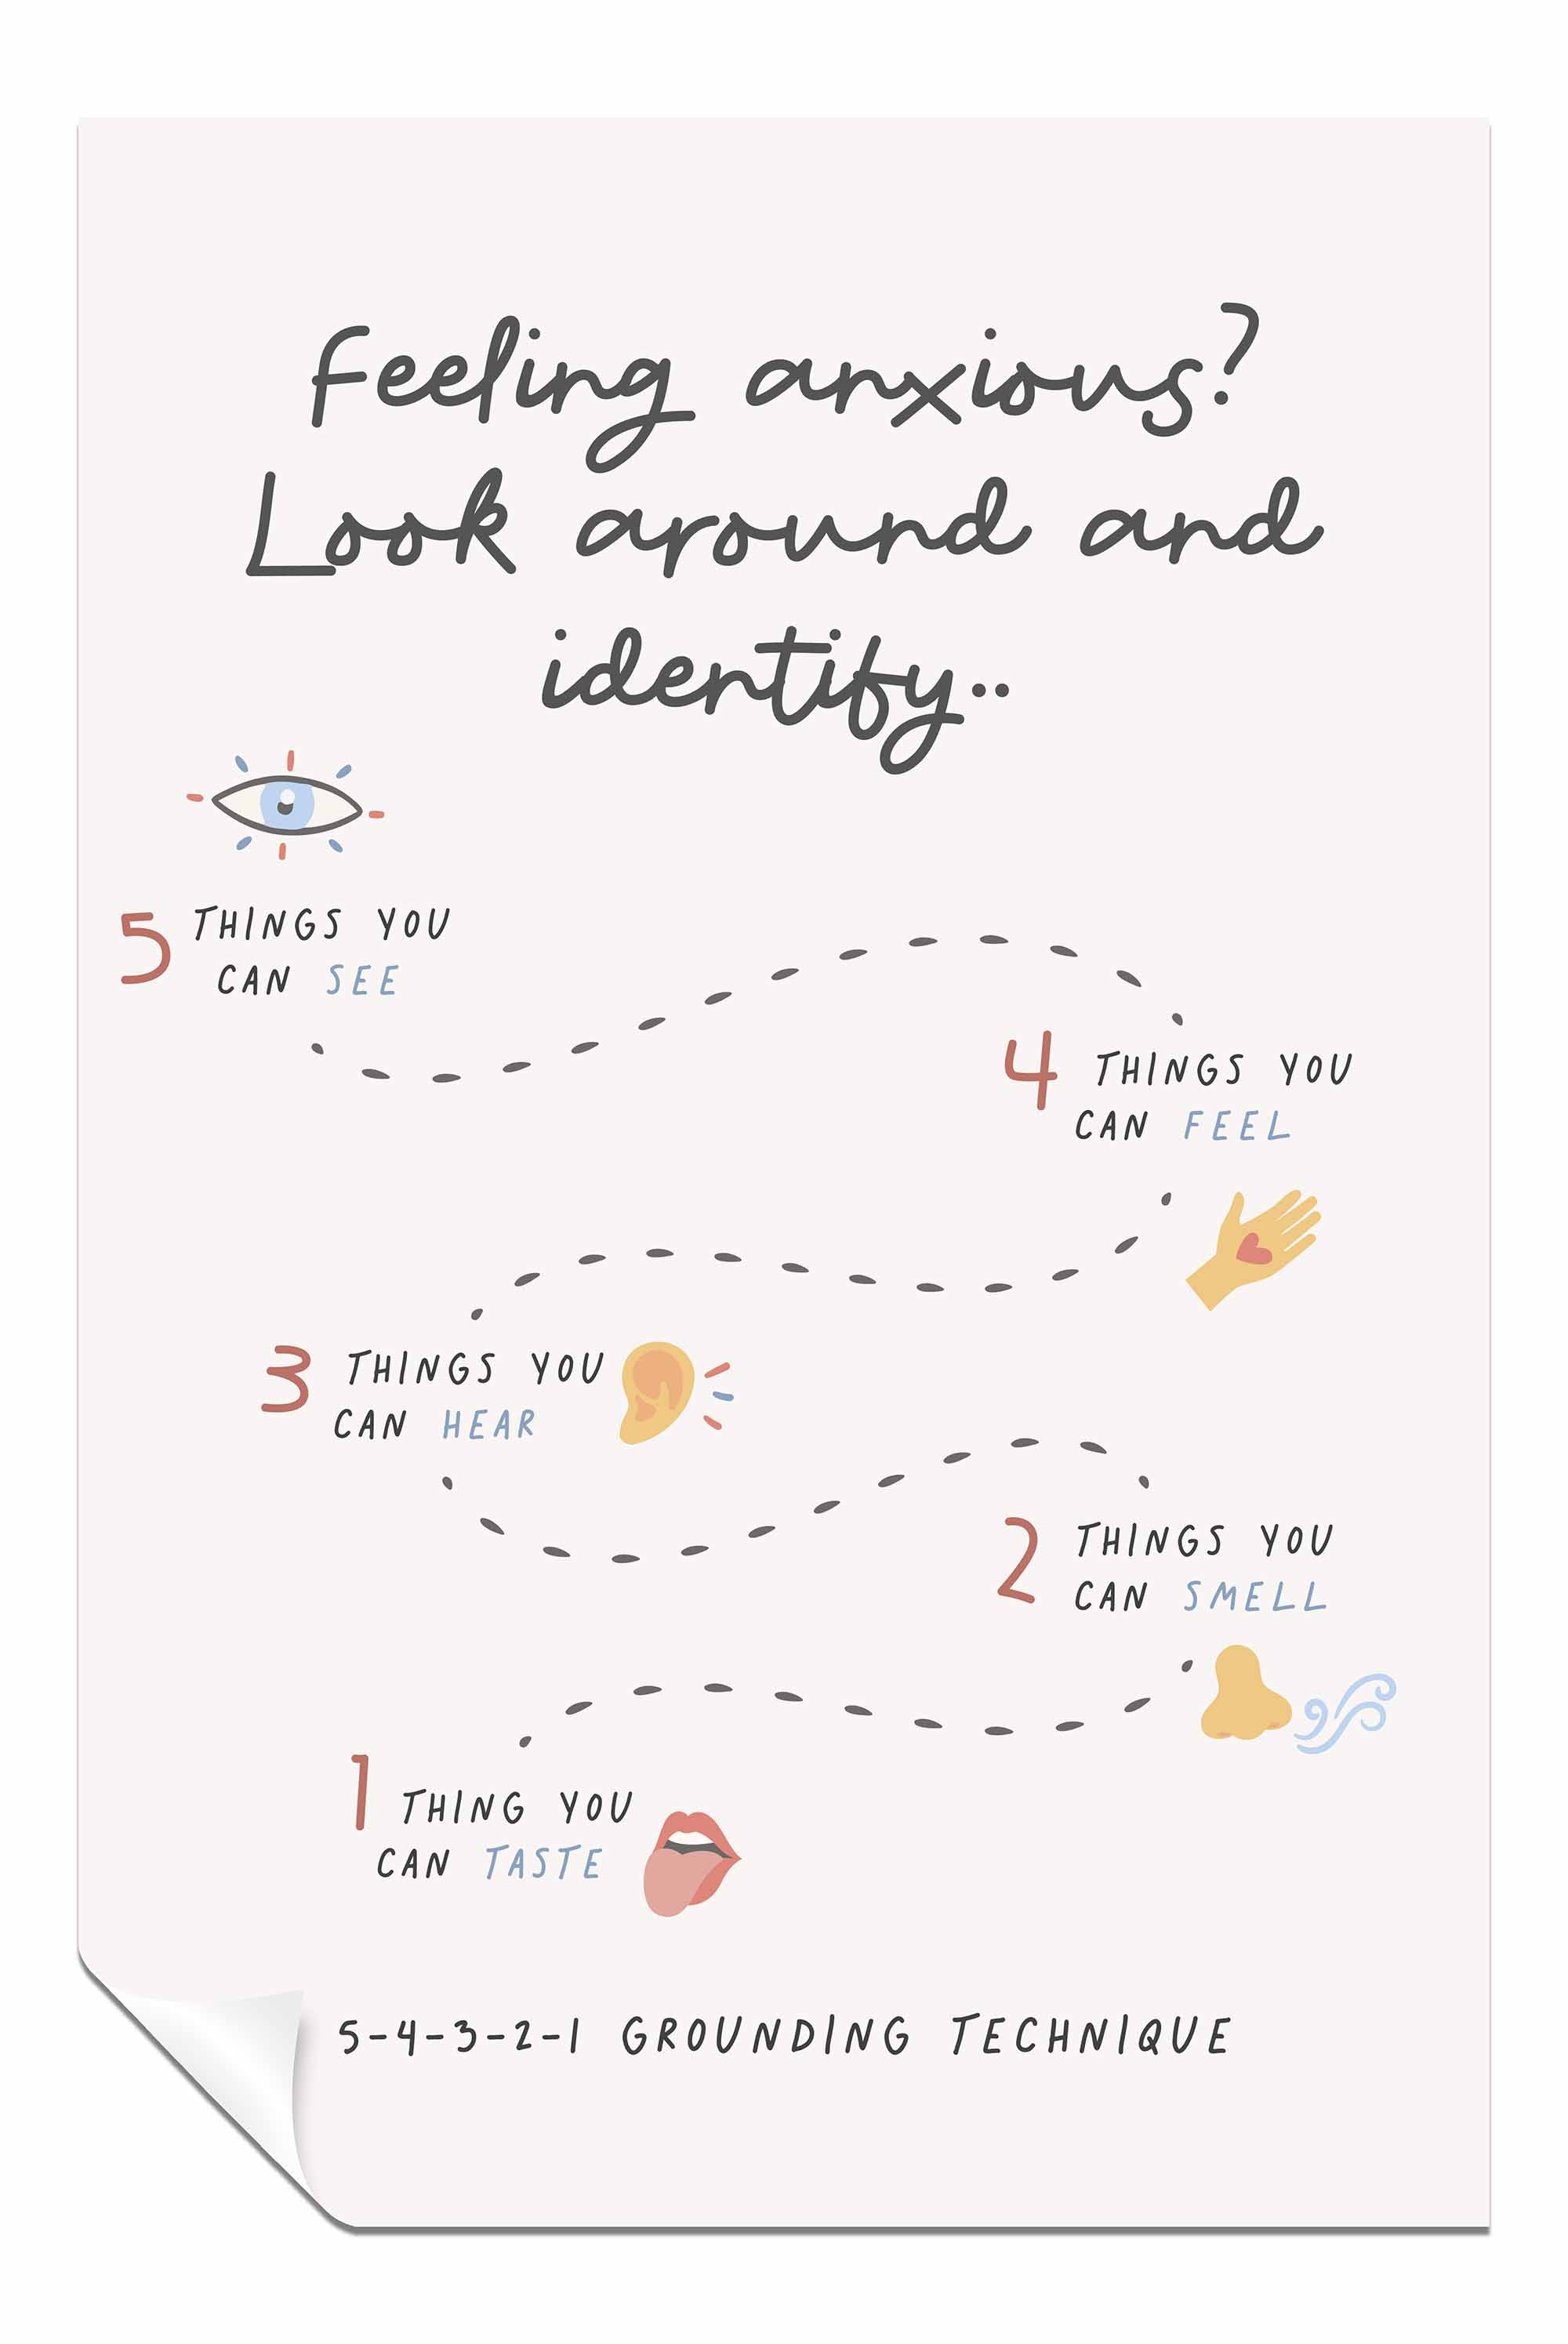 Feeling anxious?
Look around and
identify..
5 THINGS YOU
CAN SEE
4 THINGS YOU
CAN FEEL
3 THINGS YOU
CAN HEAR
2 THINGS YOU
CAN SMELL
1 THING YOU
CAN TASTE
5-4-3-2-1 GROUNDING TECHNIQUE